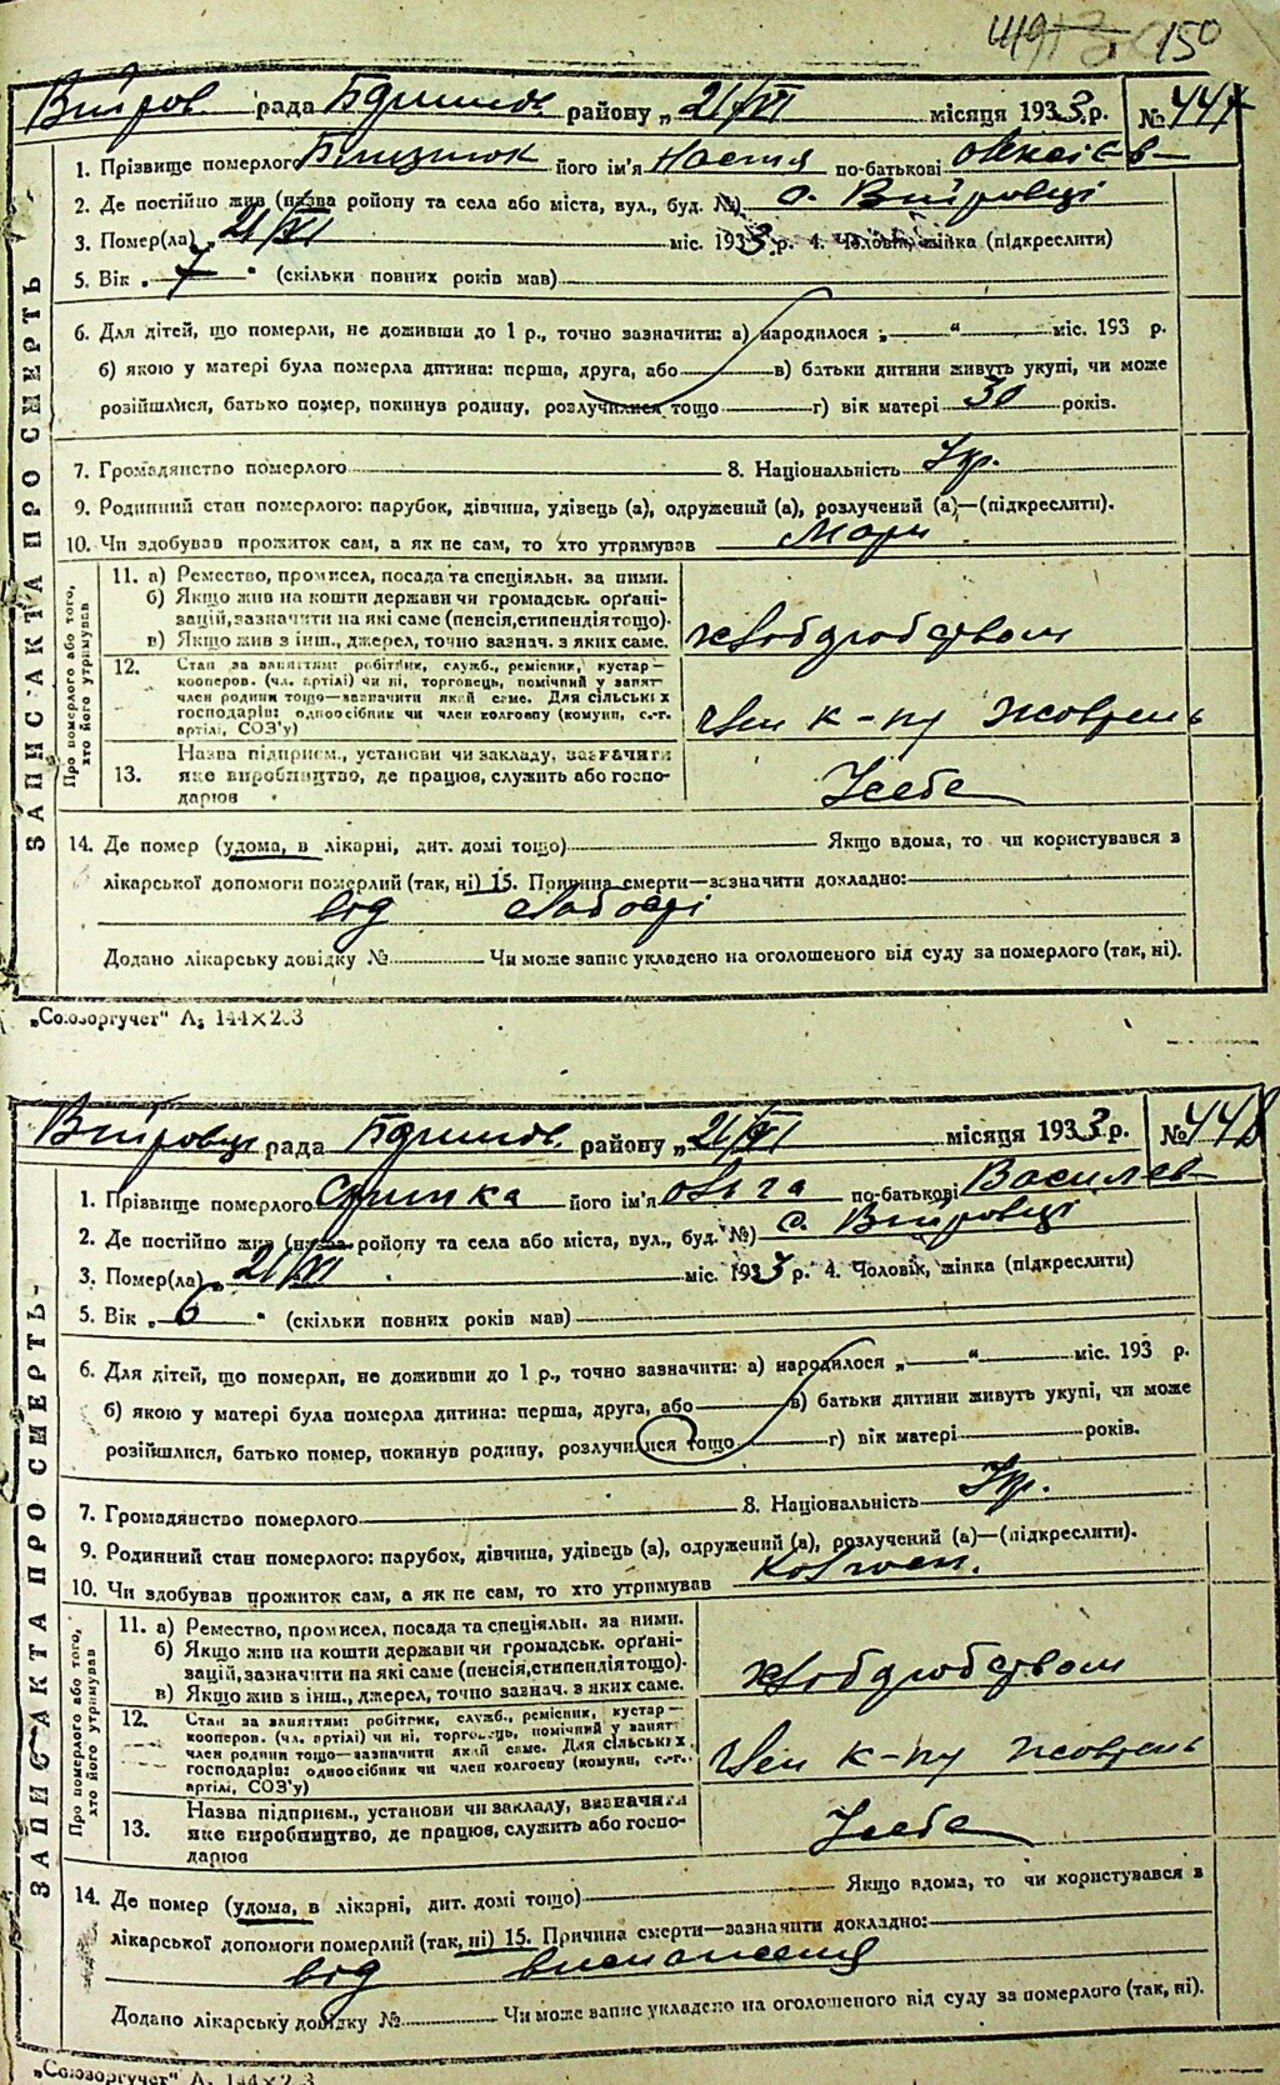 150
Війтров. рада районду „ 21/VI місяця 1933 р. № 447
ЗАПИС АКТА ПРО СМЕРТЬ
1. Прізвище померлого його ім'я Настя по-батькові Олексієв
2. Де постійно жив (назва ройону та села або міста, вул., буд. №) с.
3. Помер(ла) „ 21/VI міс. 1933 р. 4. Чоловік, жінка (підкреслити)
5. Вік „ 7 " (скільки повних років мав)
6. Для дітей, що померли, не доживши до 1 р., точно зазначити: а) народилося „ " міс. 193 р.
б) якою у матері була померла дитина: перша, друга, або в) батьки дитини живуть укупі, чи може
розійшлися, батько помер, покинув родину, розлучилися тощо г) вік матері 30 років.
7. Громадянство померлого 8. Національність Укр.
9. Родинний стан померлого: парубок, дівчина, удівець (а), одружений (а), розлучений (а)—(підкреслити).
10. Чи здобував прожиток сам, а як не сам, то хто утримував
Про померлого або того, хто його утримував
11. а) Ремество, промисел, посада та спеціяльн. за ними.
б) Якщо жив на кошти держави чи громадськ. орґані-
зацій, зазначити на які саме (пенсія, стипендія тощо).
в) Якщо жив з інш., джерел, точно зазнач. з яких саме. хлібодробством
12. Стан за заняттям: робітник, служб., ремісник, кустар—
кооперов. (чл. артілі) чи ні, торговець, помічний у занят-
член родини тощо—зазначити який саме. Для сільських
господарів: одноосібник чи член колгоспу (комуни, с.-г.
артілі, СОЗ'у) Член к-пу Жовтень
13. Назва підприєм., установи чи закладу, визначити
яке виробництво, де працює, служить або госпо-
дарює У себе
14. Де помер (удома, в лікарні, дит. домі тощо) Якщо вдома, то чи користувався з
лікарської допомоги померлий (так, ні) 15. Причина смерти—зазначити докладно:
від слабості
Додано лікарську довідку № Чи може запис укладено на оголошеного від суду за померлого (так, ні).
„Союзоргучет" А₅ 144×203
рада району „ 21/VI місяця 1933 р. № 448
ЗАПИС АКТА ПРО СМЕРТЬ
1. Прізвище померлого його ім'я Ольга по-батькові Василев
2. Де постійно жив (назва ройону та села або міста, вул., буд. №) с.
3. Помер(ла) „ 21/VI міс. 1933 р. 4. Чоловік, жінка (підкреслити)
5. Вік „ 6 " (скільки повних років мав)
6. Для дітей, що померли, не доживши до 1 р., точно зазначити: а) народилося „ " міс. 193 р.
б) якою у матері була померла дитина: перша, друга, або в) батьки дитини живуть укупі, чи може
розійшлися, батько помер, покинув родину, розлучилися тощо г) вік матері років.
7. Громадянство померлого 8. Національність Укр.
9. Родинний стан померлого: парубок, дівчина, удівець (а), одружений (а), розлучений (а)—(підкреслити).
10. Чи здобував прожиток сам, а як не сам, то хто утримував
Про померлого або того, хто його утримував
11. а) Ремество, промисел, посада та спеціяльн. за ними.
б) Якщо жив на кошти держави чи громадськ. орґані-
зацій, зазначити на які саме (пенсія, стипендія тощо).
в) Якщо жив з інш., джерел, точно зазнач. з яких саме. хлібодробством
12. Стан за заняттям: робітник, служб., ремісник, кустар—
кооперов. (чл. артілі) чи ні, торговець, помічний у занят-
член родини тощо—зазначити який саме. Для сільських
господарів: одноосібник чи член колгоспу (комуни, с.-г.
артілі, СОЗ'у) Член к-пу Жовтень
13. Назва підприєм., установи чи закладу, визначити
яке виробництво, де працює, служить або госпо-
дарює У себе
14. Де помер (удома, в лікарні, дит. домі тощо) Якщо вдома, то чи користувався з
лікарської допомоги померлий (так, ні) 15. Причина смерти—зазначити докладно:
від виснаження
Додано лікарську довідку № Чи може запис укладено на оголошеного від суду за померлого (так, ні).
„Союзоргучет" А₅ 144×203